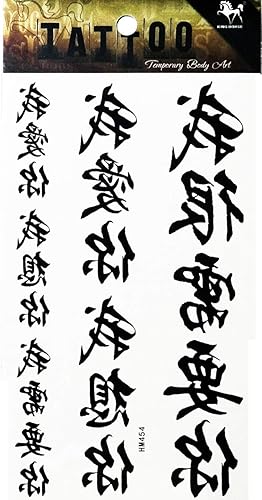 TATTOO
Temporary Body Art
我很需要你
我愛你我想你
我愛你我想你我需要你
HM454